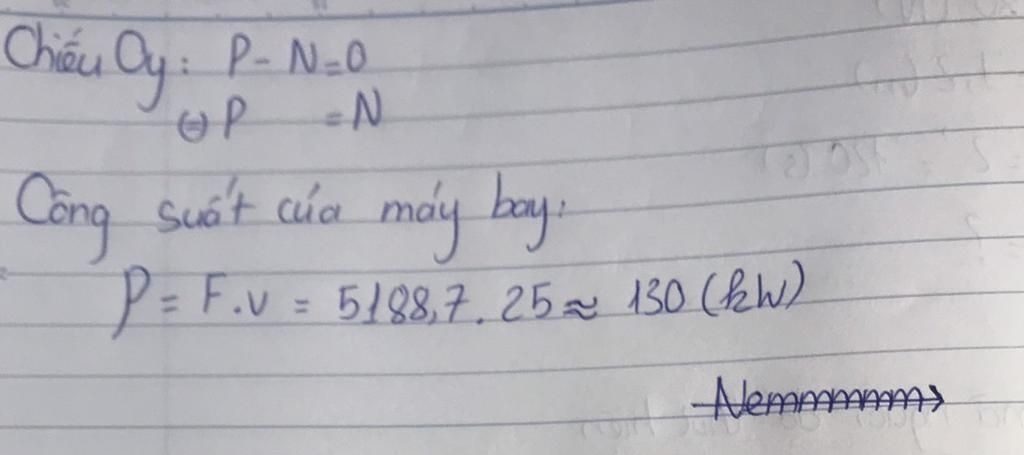 Chiếu Oy: P - N = 0
⇔ P = N
Công suất của máy bay:
P = F.v = 5188,7 . 25 ≈ 130 (kW)